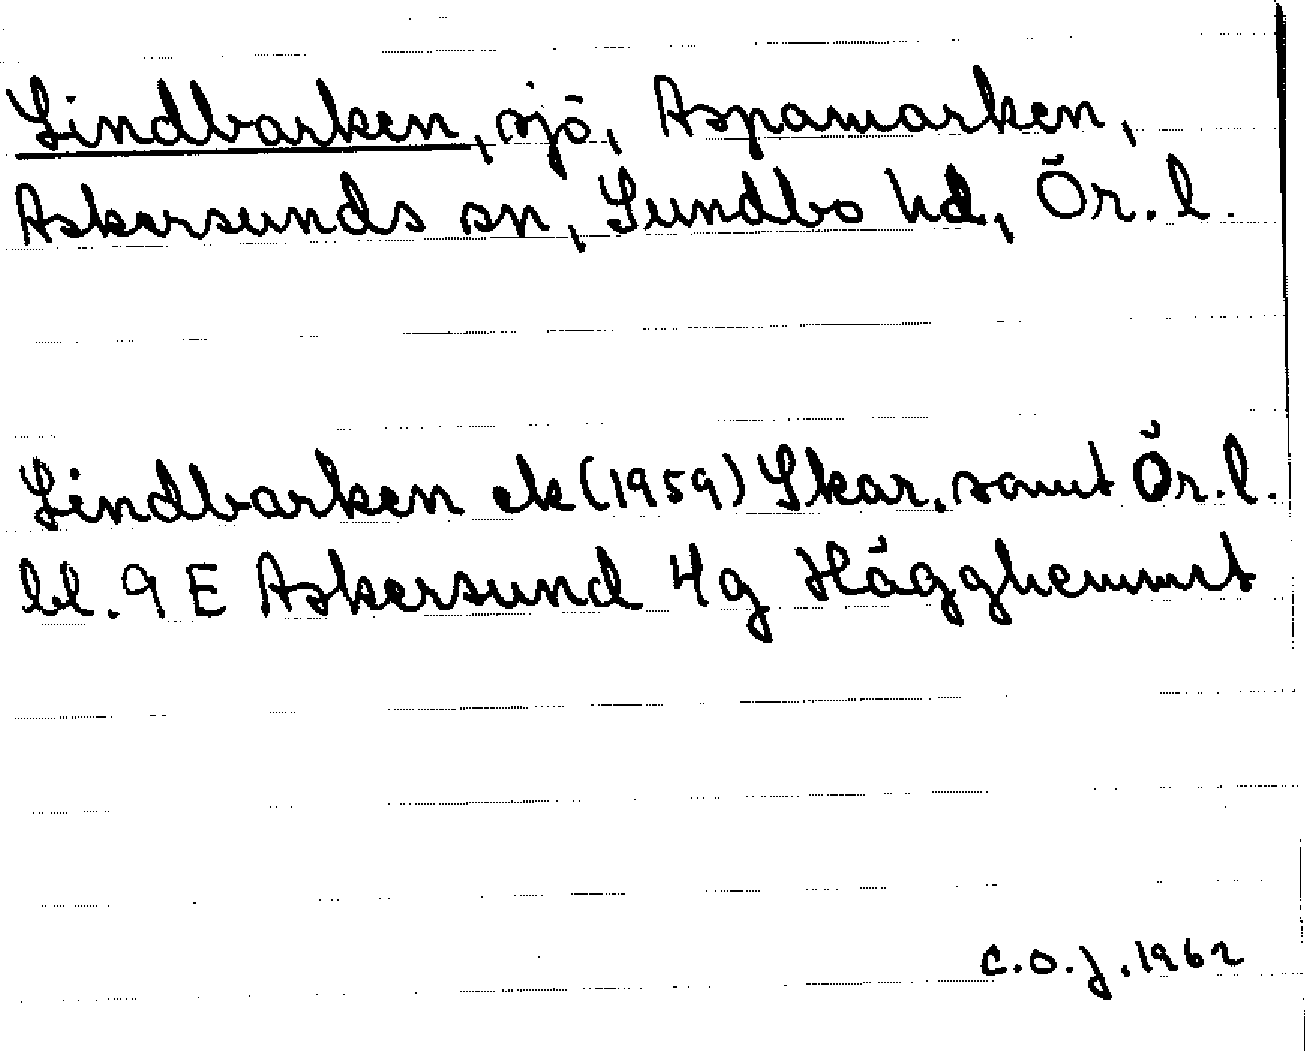 Sindbarken, sjö, Aspamarken,
Askersunds sn, Sundbo hd, Ör. l.
Sindbarken ek (1959) Skar. samt Ör. l.
bl. 9 E Askersund 4g Hägghemmet
C.O.J. 1962